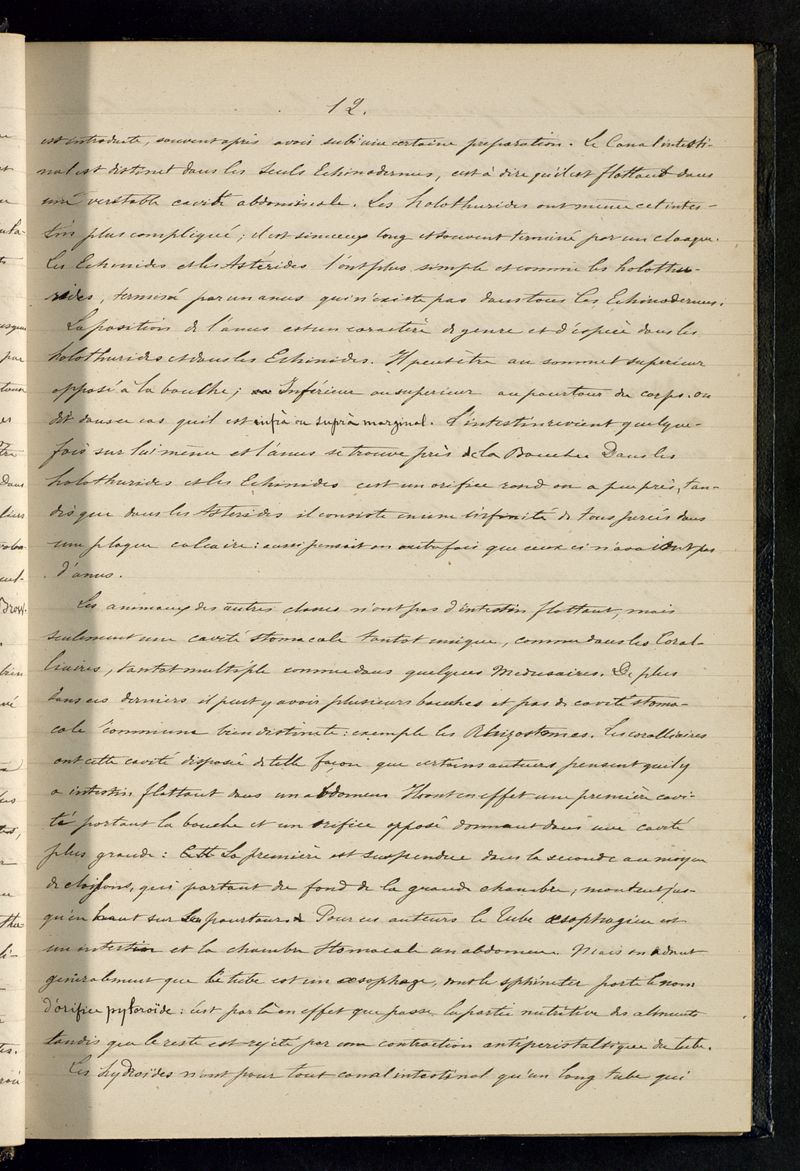 12.
est introduite, souvent après avoir subi une certaine preparation. Le Canal intesti-
nal est distinct dans les seuls Echinodermes, c'est à dire qu'il est flottant dans
une veritable cavité abdominale. Les holothurides ont même cet intes-
tin plus compliqué; il est sinueux long et souvent terminé par un cloaque.
Les Echinides et les Astérides l'ont plus simple et comme les holothu-
rides, terminé par un anus qui n'existe pas dans tous les Echinodermes.
La position de l'anus est un caractère de genre et d'éspèce dans les
holothurides et dans les Echinides. Il peut être au sommet superieur
opposé à la bouche; Inférieur ou superieur au pourtour du corps. on
dit dans ce cas qu'il est infrà ou suprà marginal. L'intestin revient quelque-
fois sur lui même et l'anus se trouve près de la Bouche Dans les
holothurides et les Echinides c'est un orifice rond ou a peu près, tan-
dis que dans les Asterides il consiste en une infinité de trous percés dans
une plaque calcaire: aussi pensait on autrefois que ceux ci n'avaient pas
d'anus.
Les animaux des autres classes n'ont pas d'intestin flottant, mais
seulement une cavité stomacale tantot unique, comme dans les Coral-
liaires, tantot multiple comme dans quelques Medusaires. De plus
dans ces derniers il peut y avoir plusieurs bouches et pas de cavité stoma-
cale commune bien distincte: exemple les Rhizostomes. Les coralliaires
ont cette cavité disposée de telle façon que certains auteurs pensent qu'il y
a intestin flottant dans un abdomen Ils ont en effet une première cavi-
té portant la bouche et un orifice opposé donnant dans une cavité
plus grande: La première est suspendue dans la seconde au moyen
de cloisons, qui partant du fond de la grande chambre, montent jus-
qu'en haut sur les pourtours Pour ces auteurs le Tube œsophagien est
un intestin et la chambre Stomacale un abdomen. Mais on admet
généralement que le tube est un œsophage, dont le sphincter porte le nom
d'orifice pyloroïde: c'est par là en effet que passe la partie nutritive des aliments
tandis que le reste est rejeté par une contraction antiperistaltique du tube.
Les hydroïdes n'ont pour tout canal intestinal qu'un long tube qui